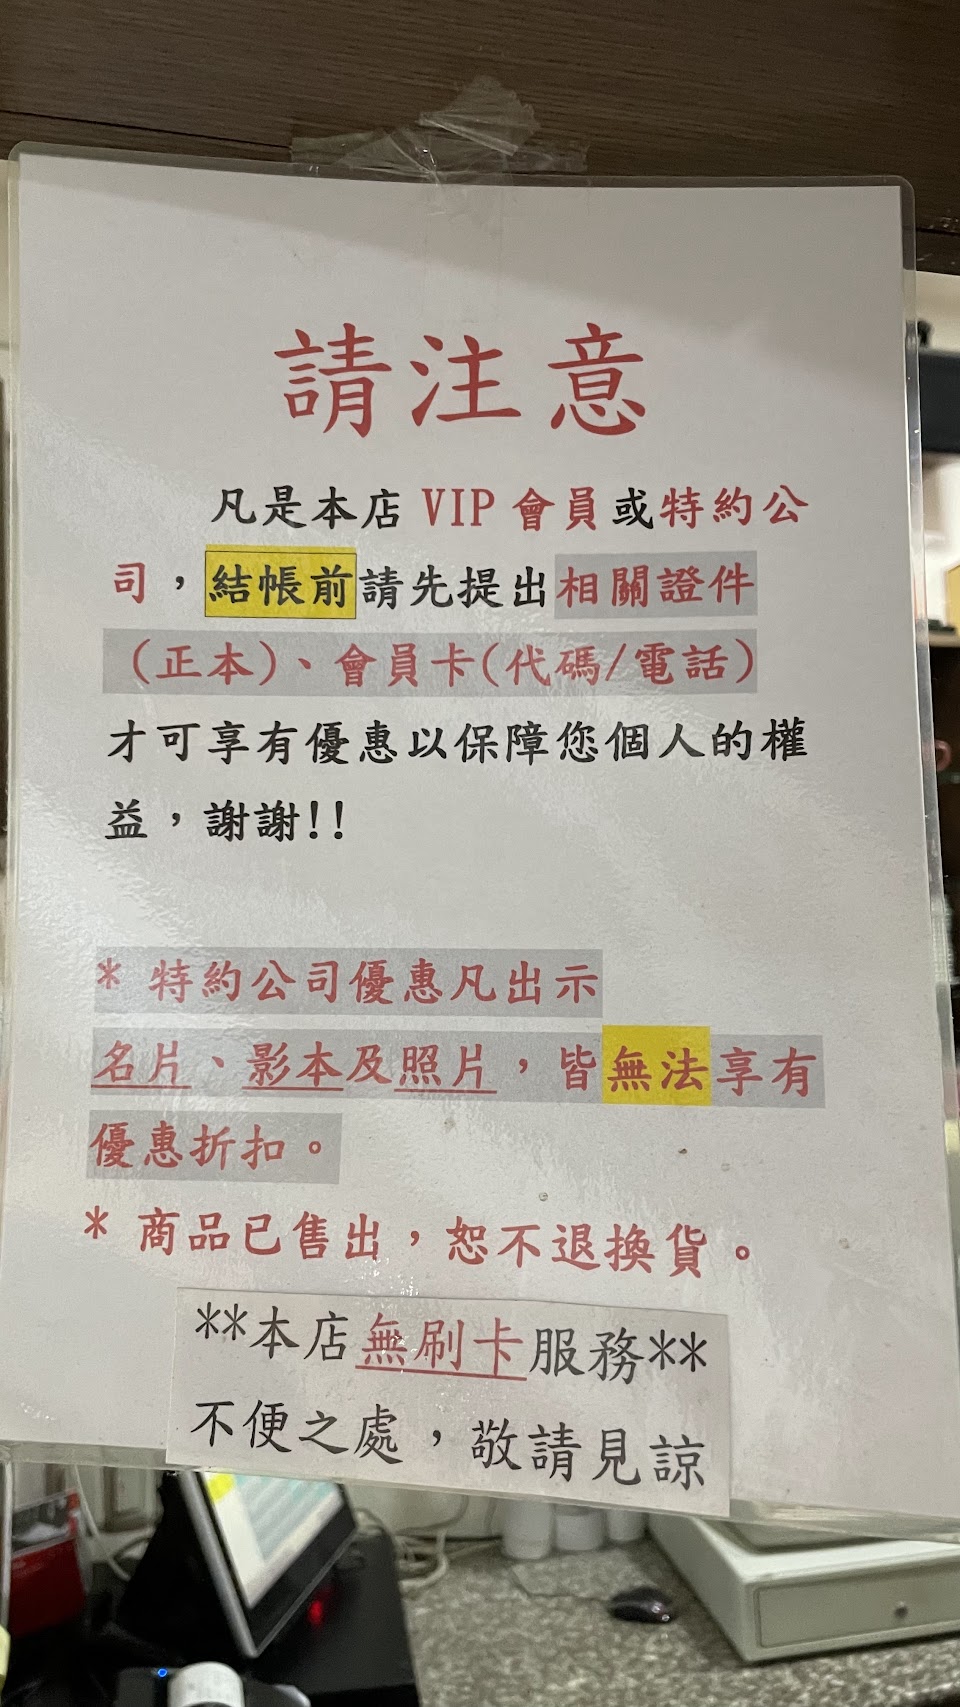 請注意
凡是本店 VIP 會員或特約公
司，結帳前請先提出相關證件
(正本)、會員卡(代碼/電話)
才可享有優惠以保障您個人的權
益，謝謝!!
* 特約公司優惠凡出示
名片、影本及照片，皆無法享有
優惠折扣。
* 商品已售出，恕不退換貨。
**本店無刷卡服務**
不便之處，敬請見諒